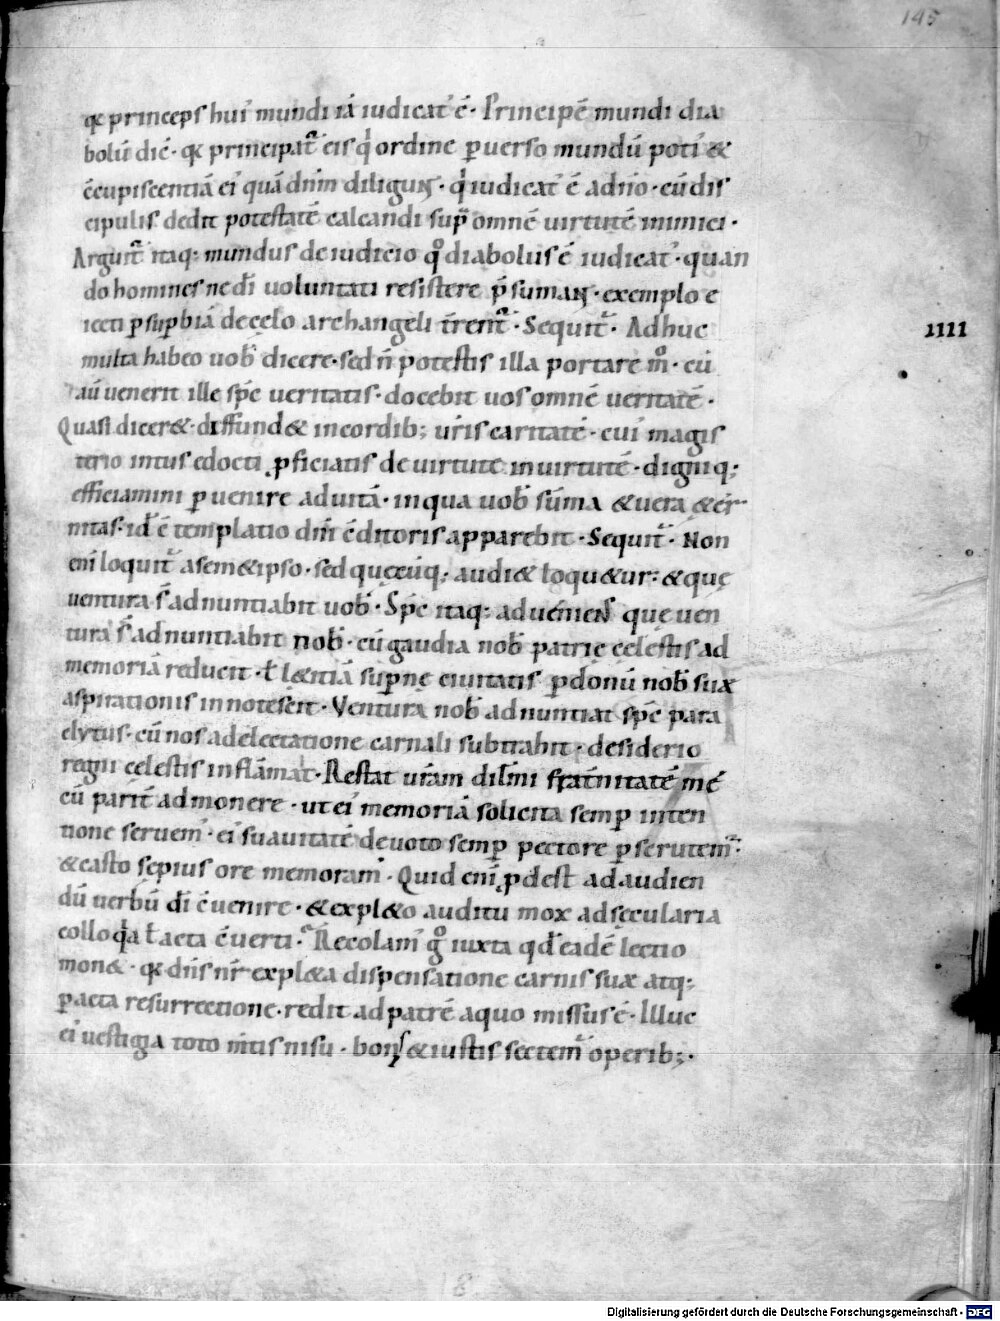 145
qꝛ princeps hui᾽ mundi iā iudicat᾽ ē· Principē mundi dia
bolū dic̄· qꝛ principat᷑ eis qͥ ordine ꝑuerso mundū poti᾽ &
c̄cupiscentiā ei᾽ quā dn̄m diligunt· qͥ iudicat᾽ ē a dn̄o· cū dis
cipulis dedit potestatē calcandi sup̄ omnē uirtutē inimici·
Arguit᷑ itaq; mundus de iudicio qͦ diabolus ē iudicat᾽· quan
do homines ne dī uoluntati resistere p̄sumant· exemplo e
iecti ꝑ supbiā de cęlo archangeli t̄rent᷑· Sequit᷑· Adhuc
multa habeo uob̄ dicere· sed n̄ potestis illa portare mͦ· cū
aū uenerit ille sp̄c ueritatis· docebit uos omnē ueritatē·
Quasi dicer&· diffund& in cordib; ur̄is caritatē· cui᾽ magis
terio intus edocti ꝓficiatis de uirtute in uirtutē· digniq;
efficiamini ꝑuenire ad uitā· in qua uob̄ sūma & uera &er
nitas· id ē c̄templatio dn̄i c̄ditoris apparebit· Sequit᷑· Non
eni loquit᷑ a sem&ipso· sed quęcūq; audi& loqu&ur; & quę
uentura s̄ adnuntiabit uob̄· Sp̄c itaq; adueniens que uen
tura s̄ adnuntiabit nob̄· cū gaudia nob̄ patrię cęlestis ad
memoriā reducit· ł l&itiā sup̄nę ciuitatis ꝑ donū nob̄ suæ
aspirationis innotescit· Ventura nob̄ adnuntiat sp̄c para
clytus· cū nos a delectatione carnali subtrahit· desiderio
regni cęlestis inflāmat· Restat ur̄am dilm̄i frat̄nitatē me
cū parit̄ admonere· ut ei᾽ memoriā solicita semꝑ inten
tione seruem᾽· ei᾽ suauitatē deuoto semꝑ pectore ꝑscrutem᷑;
& casto sępius ore memoram᾽· Quid eni ꝓdest ad audien
dū uerbū dī c̄uenire· & expl&o auditu mox ad sęcularia
colloqͥa ł acta c̄uerti· Recolam᾽ gͦ iuxta qd̄ eadē lectio
mon&· qꝛ dn̄s nr̄ expl&a dispensatione carnis suæ atq;
ꝑacta resurrectione· redit ad patrē a quo missus ē· Illuc
ei᾽ uestigia toto m̄tis nisu· bonis & iustis sectem᷑ operib;·
IIII
Digitalisierung gefördert durch die Deutsche Forschungsgemeinschaft - DFG